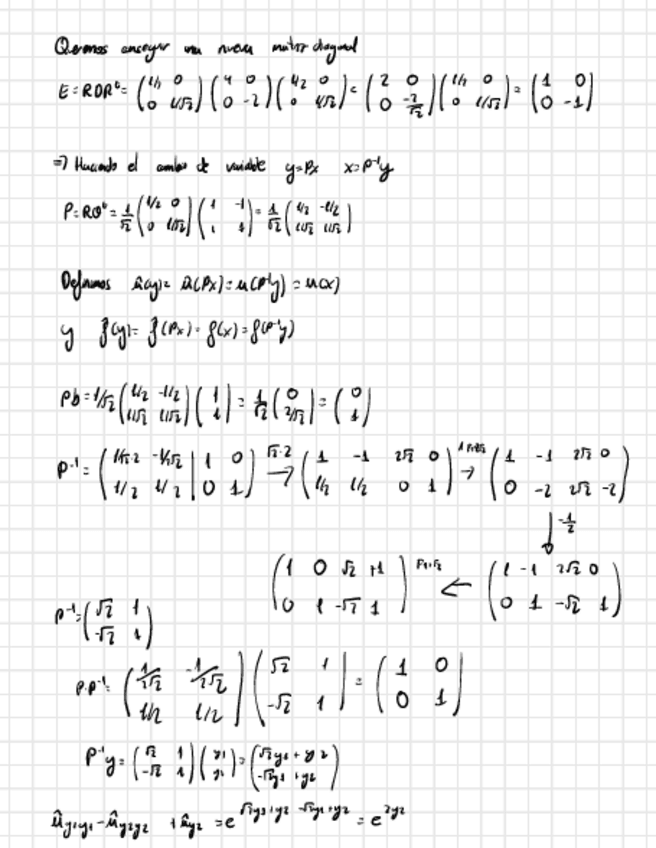 Queremos conseguir una nueva matriz diagonal
E = RDR^t = (1/2 0; 0 1/√2) (4 0; 0 -2) (1/2 0; 0 1/√2) = (2 0; 0 -2/√2) (1/2 0; 0 1/√2) = (1 0; 0 -1)
=> Haciendo el cambio de variable y=Px x=P⁻¹y
P=RO^t = 1/√2 (1/2 0; 0 1/√2) (1 -1; 1 1) = 1/√2 (1/2 -1/2; 1/√2 1/√2)
Definimos û(y)= û(Px)=u(P⁻¹y)=u(x)
y f̂(y)= f̂(Px)= f(x)=f(P⁻¹y)
Pb = 1/√2 (1/2 -1/2; 1/√2 1/√2) (1; 1) = 1/√2 (0; 2/√2) = (0; 1)
P⁻¹ = (1/√2·2 -1/2√2 | 1 0; 1/2 1/2 | 0 1) √2·2 → (1 -1 2√2 0; 1/2 1/2 0 1) → (1 -1 2√2 0; 0 -2 2√2 -2)
↓ -1/2
(1 0 √2 +1; 0 1 -√2 1) ← (1 -1 2√2 0; 0 1 -√2 1)
P⁻¹ = (√2 1; -√2 1)
P·P⁻¹ = (1/2√2 -1/2√2; 1/2 1/2) (√2 1; -√2 1) = (1 0; 0 1)
P⁻¹y = (√2 1; -√2 1) (y1; y2) = (√2y1 + y2; -√2y1 + y2)
û_y1y1 - û_y2y2 + û_y2 = e^(√2y1+y2 -√2y1+y2) = e^(2y2)